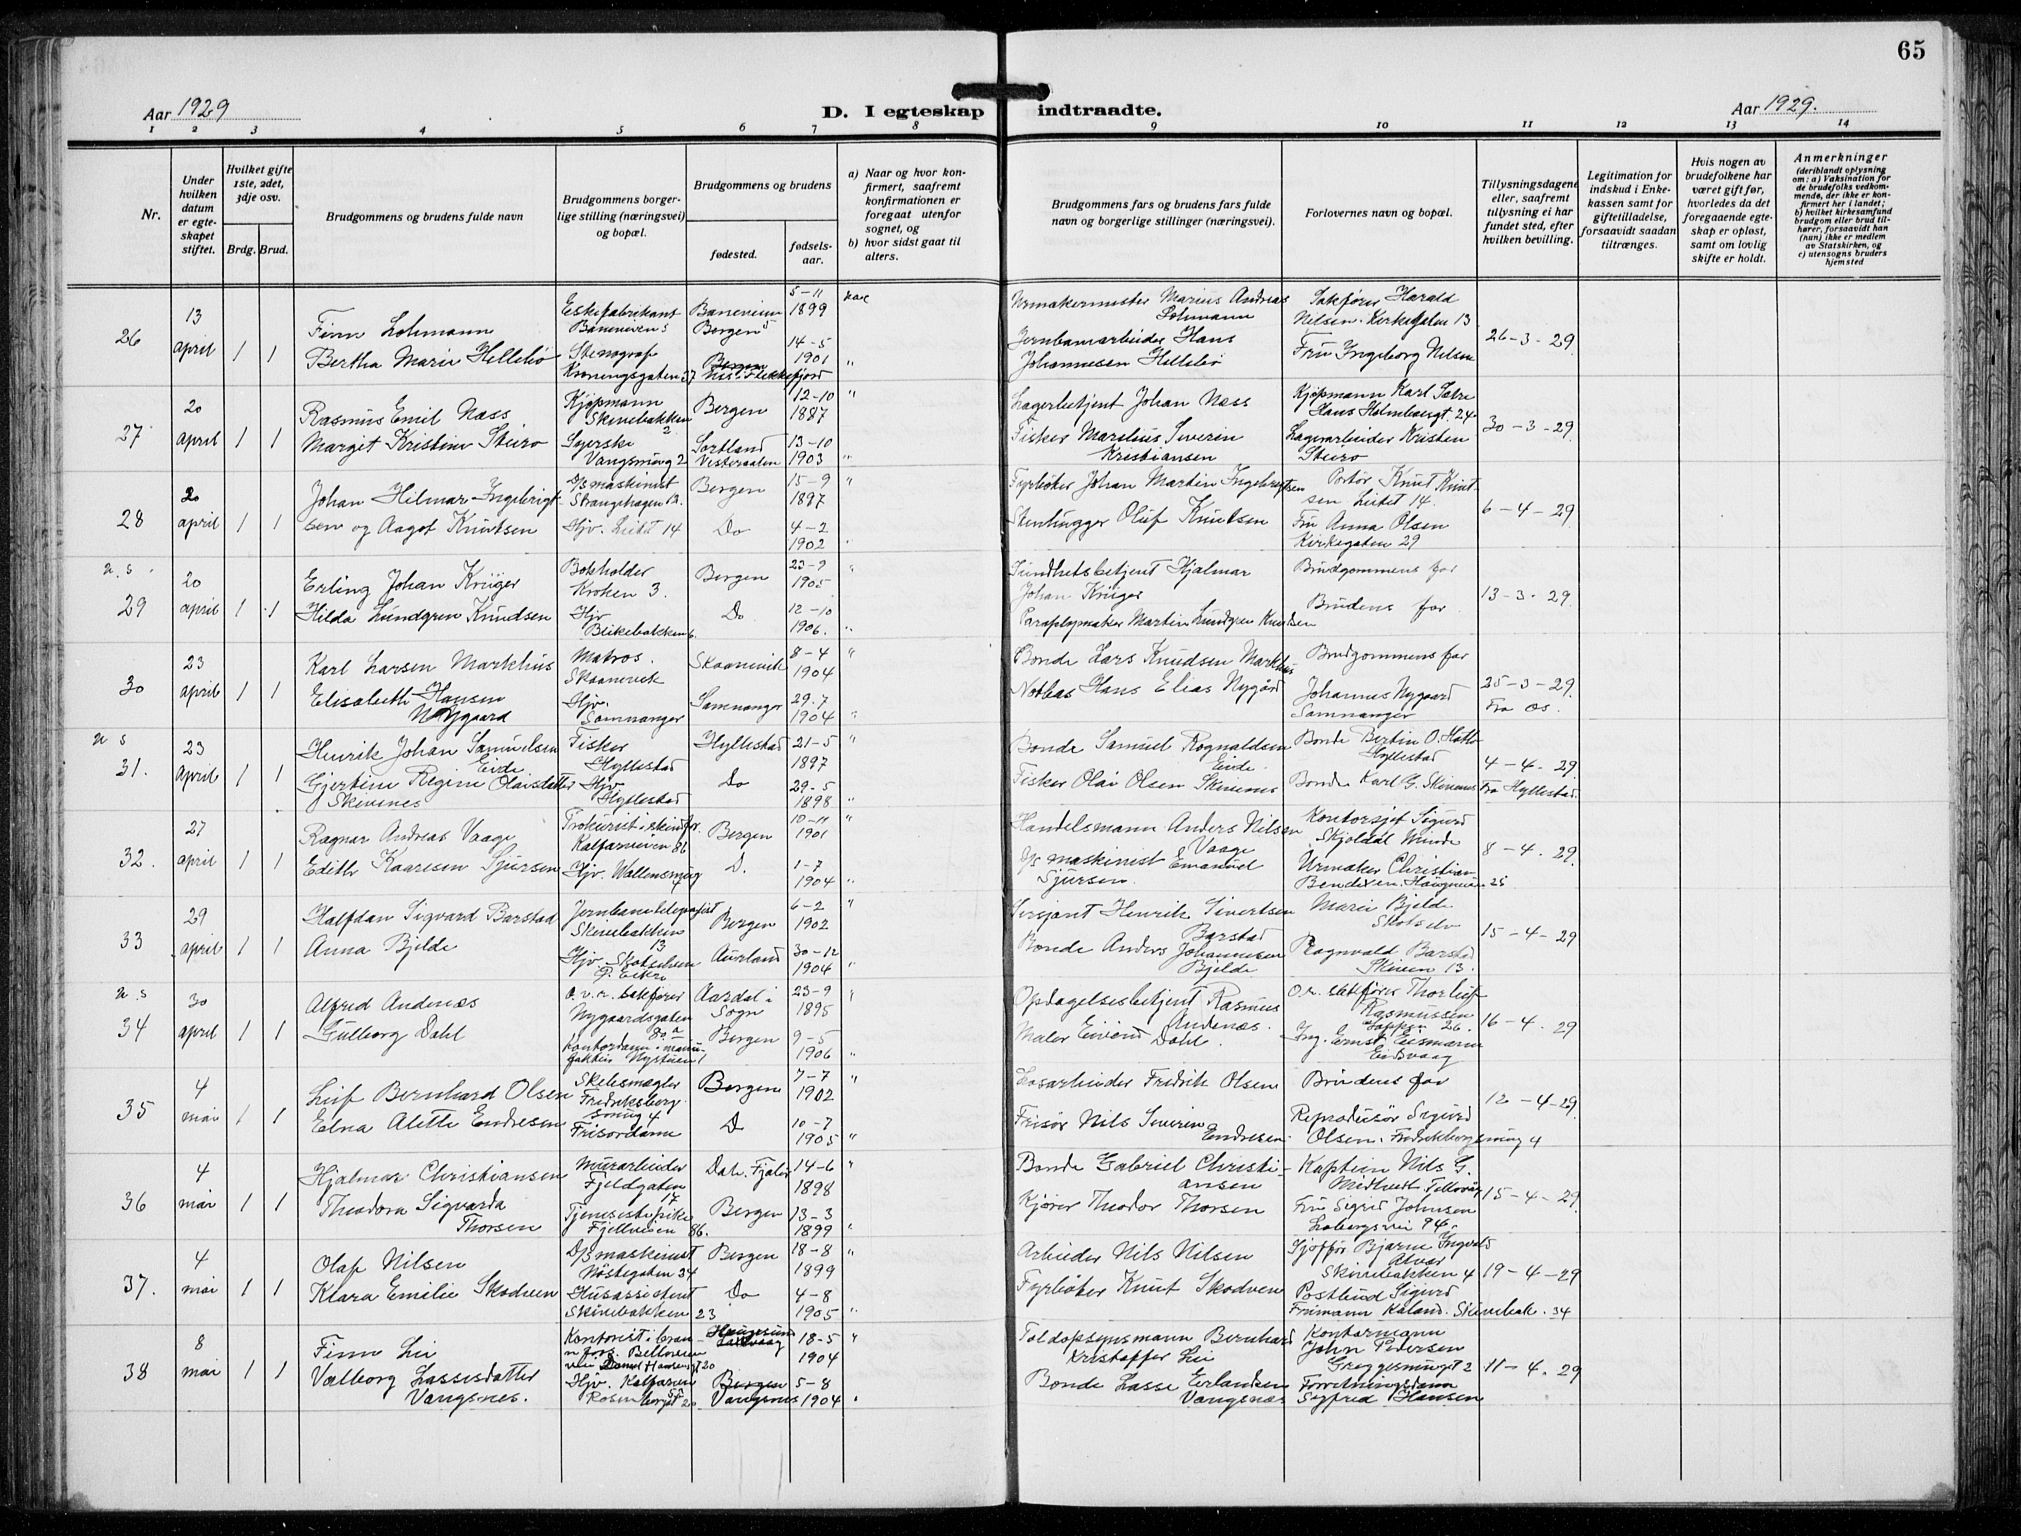 65
Aar 1929
D. I egteskap indtraadte.
Aar 1929.
1 2 3 4 5 6 7 8 9 10 11 12 13 14
Nr.
Under hvilken datum er egteskapet stiftet.
Hvilket gifte 1ste, 2det, 3dje osv.
Brdg. Brud.
Brudgommens og brudens fulde navn
Brudgommens borgerlige stilling (næringsvei) og bopæl.
Brudgommens og brudens
fødested.
fødselsaar.
a) Naar og hvor konfirmert, saafremt konfirmationen er foregaat utenfor sognet, og
b) hvor sidst gaat til alters.
Brudgommens fars og brudens fars fulde navn og borgerlige stillinger (næringsvei).
Forlovernes navn og bopæl.
Tillysningsdagene eller, saafremt tillysning ei har fundet sted, efter hvilken bevilling.
Legitimation for indskud i Enkekassen samt for giftetilladelse, forsaavidt saadan tiltrænges.
Hvis nogen av brudefolkene har været gift før, hvorledes da det foregaaende egteskap er opløst, samt om lovlig skifte er holdt.
Anmerkninger
(deriblandt oplysning om: a) Vaksination for de brudefolks vedkommende, der ikke er konfirmert her i landet;
b) hvilket kirkesamfund brudgom eller brud tilhører, forsaavidt han (hun) ikke er medlem av Statskirken, og
c) utensogns bruders hjemsted
26 13 april 1 1
Finn Lohmann
Bertha Marie Hellebø
Eskefabrikant
Baneveien 5
Stenograf
Kroningsgaten 37
Baneveien 5
Bergen
Bergen
Nes. Flekkefjord
5-11
1899
14-5
1901
Urmakermester Marius Andreas
Lohmann
Jernbanearbeider Hans
Johannesen Hellebø
Sakfører Harald
Nilsen. Kirkegaten 13
Fru Ingeborg Nilsen
26-3-29
27 20 april 1 1
Rasmus Emil Næss
Marget Kristine Steiro
Kjøpmann
Skivebakken 2
Syerske
Vangsmug 2
Bergen
Sortland
Vesteraalen
12-10
1887
13-10
1903
Lagerbetjent Johan Næss
Fisker Marelius Severin
Kristiansen
Kjøpmann Karl Sætre
Hans Holmboesgt 24
Lagerarbeider Kristen
Steiro
30-3-29
28 20 april 1 1
Johan Hilmar Ingebrigt-
sen og Aagot Knutsen
D/S maskinist
Strangehagen 13.
Hjv. Lidet 14
Bergen
Do
15-9
1897
4-2
1902
Fyrbøter Johan Martin Ingebrigtsen
Stenhugger Oluf Knutsen
Portør Knut Knut-
sen Lidet 14.
Fru Anna Olsen
Kirkegaten 29
6-4-29
u. s.
29 20 april 1 1
Erling Johan Krüger
Hilda Lundgren Knudsen
Bokholder
Kroken 3.
Hjv
Blekebakken 6.
Bergen
Do
1905
12-10
1906.
Sundhetsbetjent Hjalmar
Johan Krüger
Paraplymaker Martin Lundgren Knudsen
Brudgommens far
Brudens far
13-3-29
30 23 april 1 1
Karl Larsen Markhus
Elisabeth Hansen
Nygaard
Matros.
Skaanevik
Hjv.
Samnanger
Skaanevik
Samnanger
8-4
1904
29.7
1904
Bonde Lars Knudsen Markhus
Notbas Hans Elias Nygård
Brudgommens far
Johannes Nygaard
Samnanger
25-3-29.
Fra Os.
u s
31. 23 april 1 1
Henrik Johan Samuelsen
Eide
Gjertine Regine Olaisdatter
Skivenes
Fisker
Hyllestad
Hjv
Hyllestad
Hyllestad
Do
21-5
1897
29-5
1898
Bonde Samuel Rognaldsen
Eide.
Fisker Olai Olsen Skivenes
Bonde Bertin O. Hatle
Hyllestad
Bonde Karl G. Skivenes
4-4-29
Fra Hyllestad.
32. 27 april 1 1
Ragnar Andreas Vaage
Edith Kaaresen Sjursen
Kalfarveien 86
Hjv. Wallemsmug 4
Bergen
D.
10-11
1901
1-7
1904
Handelsmann Anders Nilsen
Vaage
D/S maskinist Emanuel
Sjursen.
Kontorsjef Sigurd
Skjoldal Minde
Urmaker Christian
Bendixen. Haugeveien 25
8-4-29
33 29 april 1 1
Halfdan Sigvard Barstad
Anna Bjelde
Jernbanetelegrafist
Skivebakken
13
Hjv. Skotselven
Ø. Eiker
Bergen
Aurland
6-2
1902
30-12
1904
Sersjant Henrik Sivertsen
Barstad
Bonde Anders Johannesen
Bjelde
Marie Bjelde
Skotselv
Ragnvald Barstad
Skiveb 13.
15-4-29
u. s
34 30 april 1 1
Alfred Andenæs
Gulborg Dahl
o. r. sakfører
Nygaardsgaten
80 a
Kontordame i manu-
faktur Nystuen 1
Aardal i
Sogn
Bergen
23-9
1895
9-5
1906
Opdagelsesbetjent Rasmus
Andenæs.
Maler Eivind Dahl.
O.r. sakfører Thorleif
Rasmussen
Ing. Ernst Eismann
Eidsvaag
16-4-29
35 4 mai 1 1
Leif Bernhard Olsen
Edna Alette Endresen
Skibsmægler
Fredriksberg
smug 4
Frisørdame
Bergen
D
7-7
1902
10-7
1905
Losarbeider Fredrik Olsen
Frisør Nils Severin
Endresen
Brudens far
Reprodusør Sigurd
Olsen. Fredriksbergsmug 4
12-4-29
36 4 mai 1 1
Hjalmar Christiansen
Theodora Sigvarda
Thorsen
Murarbeider
Fjeldgaten
17
Tjenestepike
Fjellveien 86.
Dale. Fjaler
Bergen
14-6
1898
13-3
1899
Bonde Gabriel Christi-
ansen
Kjører Theodor Thorsen
Kaptein Nils G.
Midtveit Tellevåg
Fru Sigrid Johnsen
Løbergsvei 94.
15-4-29
37. 4 mai 1 1
Olaf Nilsen
Klara Emilie Skodvin
D/S maskinist
Nøstegaten 34
Husassistent
Skivebakken 23
Bergen
Do
18-8
1899
4-8
1905
Arbeider Nils Nilsen
Fyrbøter Knut Skodven
Sjøffør Bjarne Ingvald
Alvær
Skivebakken 4
Postbud Sigurd
Frimann Kaland. Skivebak. 34
19-4-29
38 8 mai 1 1
Finn Lie
Valborg Lassesdatter
Vangsnes.
Hjv. Kalfarvei
Rosenborggt 20
Haugesund
Bergen
Vangsnes
18-5
1904
5-8
1904
Toldopsynsmann Bernhard
Kristoffer Lie
Bonde Lasse Erlandsen
Vangsnæs
Kontormann
John Pedersen
Forretningsdame
Sigfrid Hansen
11-4-29